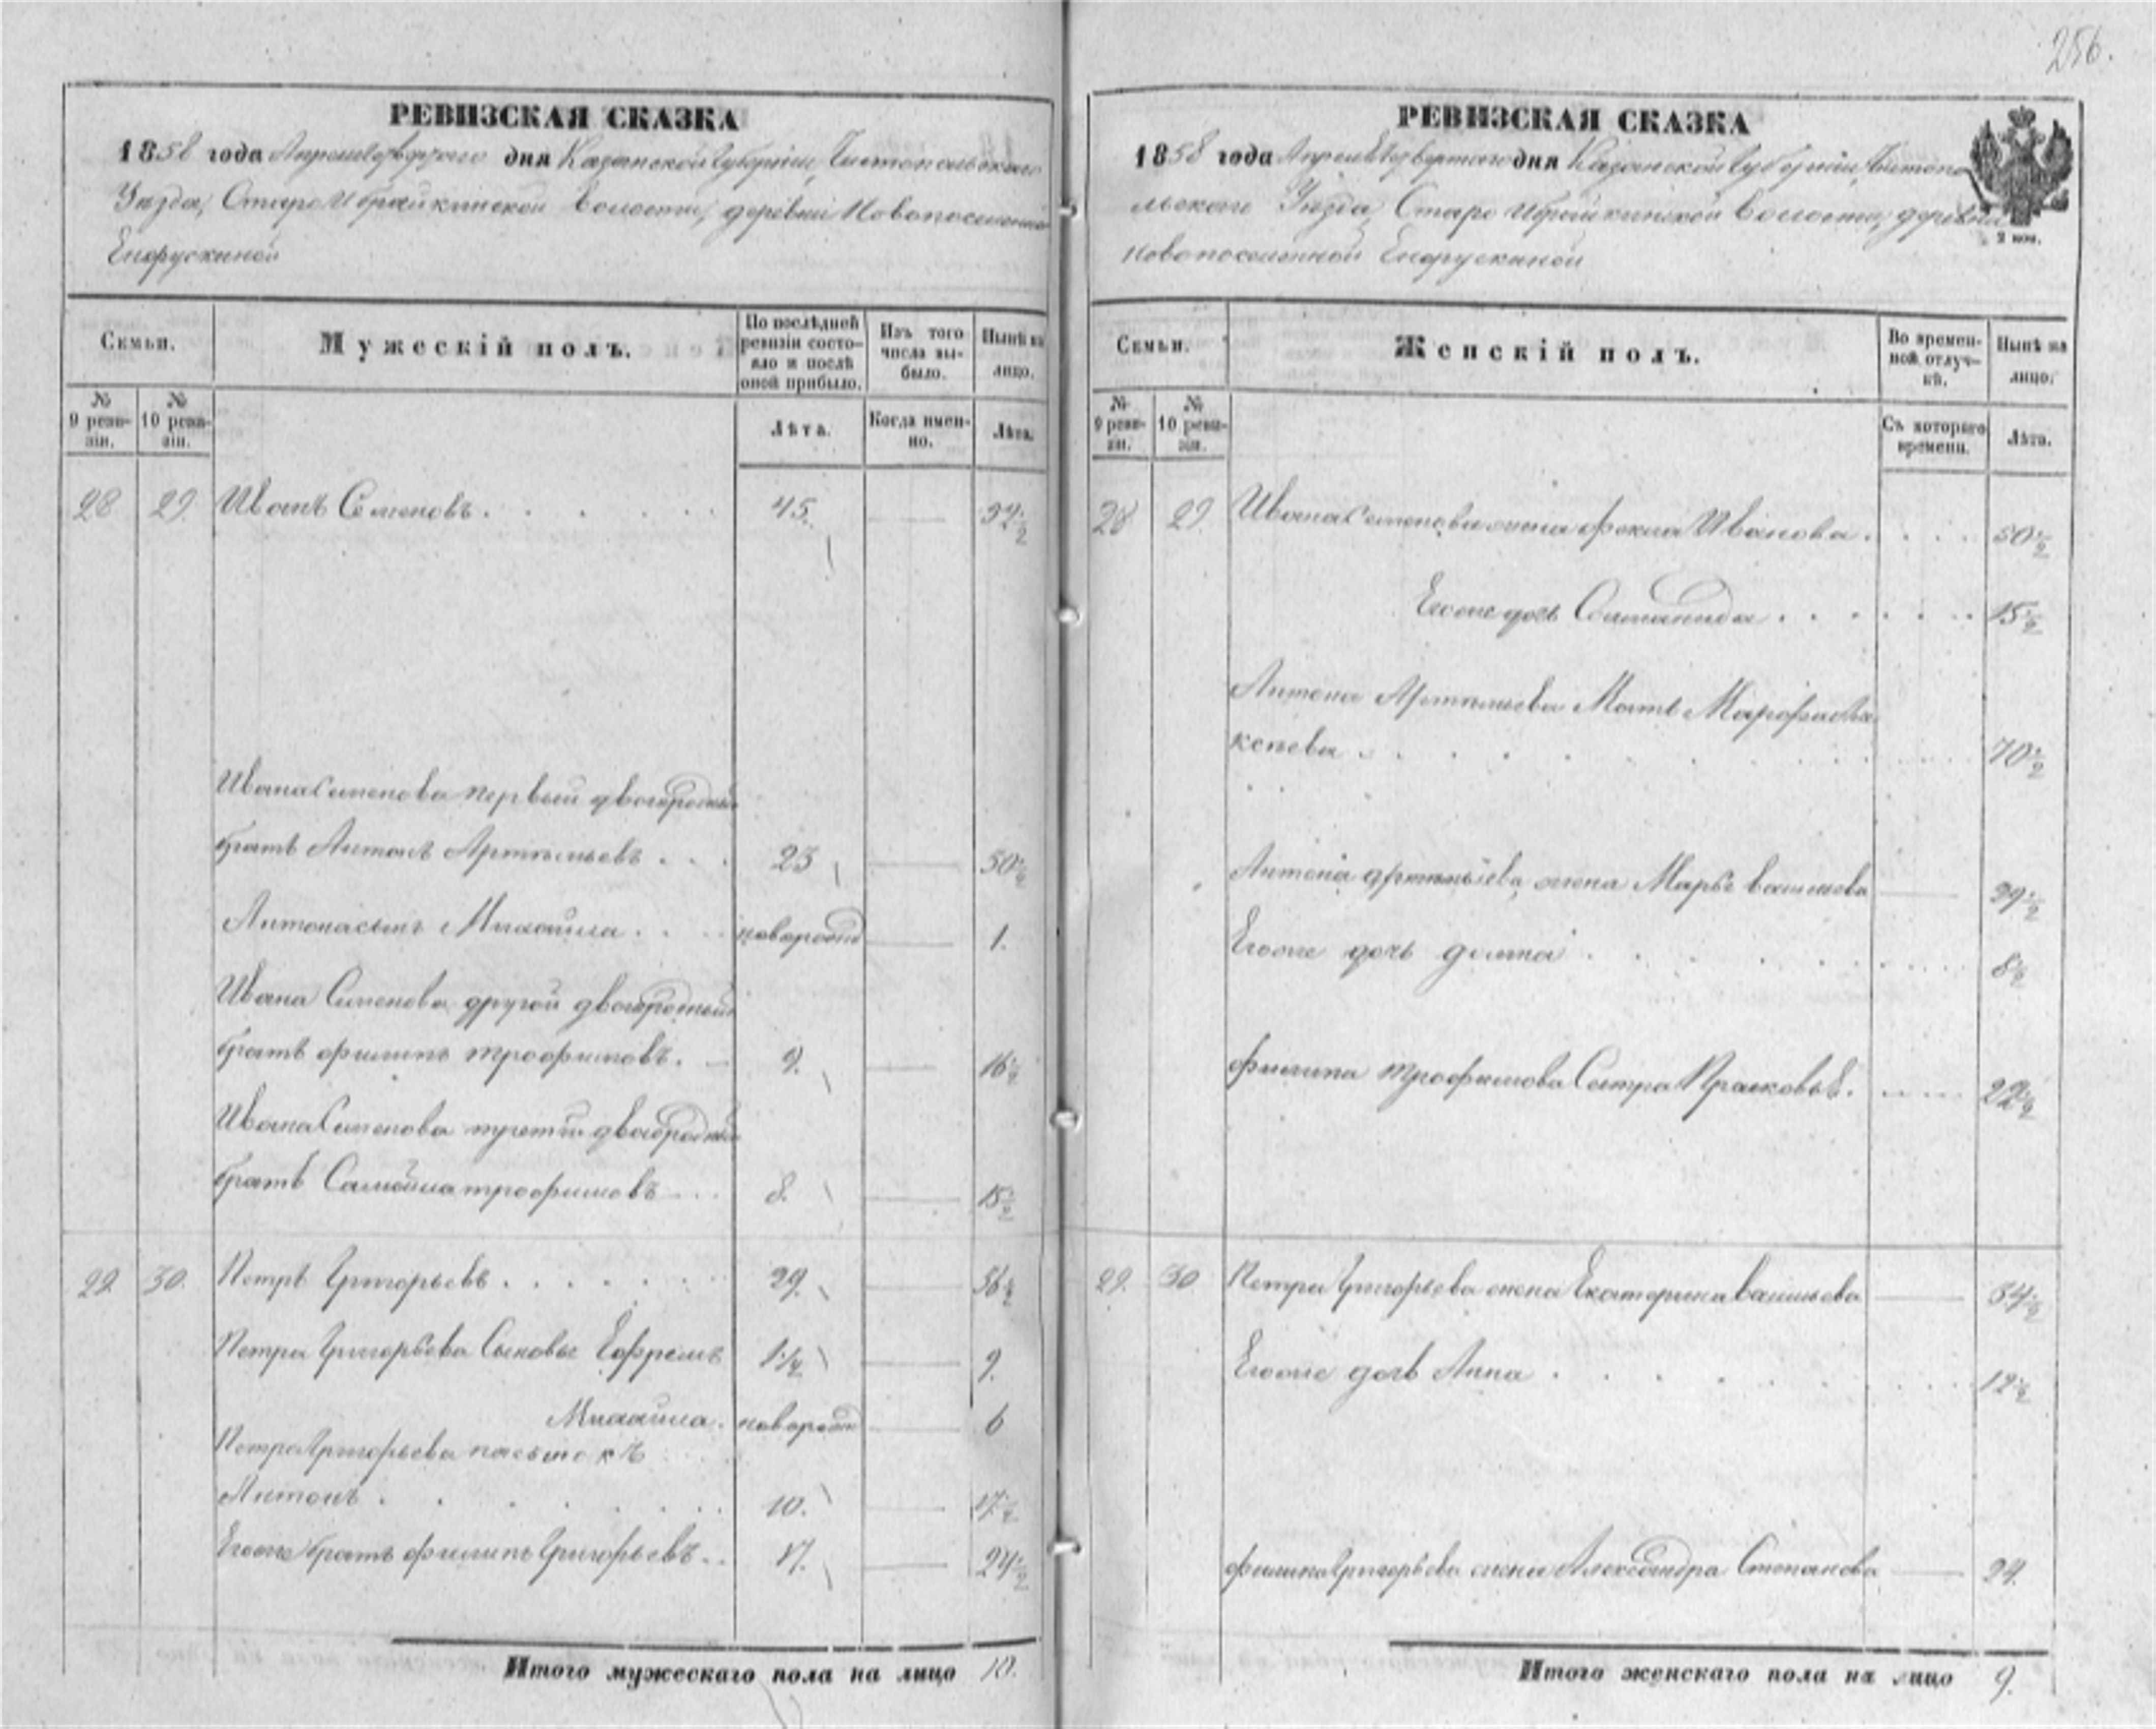 256.
РЕВИЗСКАЯ СКАЗКА
1858 года Апреля четвертого дня Казанской Губернiи, Чистопольскаго
Уѣзда, Старо Ибрайкинской волости, деревни Новопоселенной
Енорускиной
Семьи.
Мужескiй полъ.
По послѣдней ревизiи состояло и послѣ оной прибыло.
Изъ того числа выбыло.
Нынѣ на лицо.
№ 9 ревизiи.
№ 10 ревизiи.
Лѣта.
Когда именно.
Лѣта.
28 29. Иванъ Семеновъ 45.
Ивана Семенова первый двоюродный
братъ Антонъ Артемьевъ 23 30½
Антона сынъ Михайла новорожд 1.
Ивана Семенова другой двоюродный
братъ Филипъ Трофимовъ. 9. 16½
Ивана Семенова третiй двоюродный
братъ Самойла Трофимовъ 8. 15½
29. 30. Петръ Григорьевъ 29. 36½
Петра Григорьева Сыновья Ефремъ 1½ 9.
Михайла. новорожд 6
Петра Григорьева пасынокъ
Антонъ 10. 17½
Егоже братъ Филипъ Григорьевъ 17. 24½
Итого мужескаго пола на лицо 10.
РЕВИЗСКАЯ СКАЗКА
1858 года Апреля четвертого дня Казанской Губернiи, Чистопо
льскаго Уѣзда, Старо Ибрайкинской волости, деревни
Новопоселенной Енорускиной
2 коп.
Семьи.
Женскiй полъ.
Во временной отлучкѣ.
Нынѣ на лицо.
№ 9 ревизiи.
№ 10 ревизiи.
Съ котораго времени.
Лѣта.
28 29 Ивана Семенова жена Фекла Иванова. 50½
Егоже дочь Соломанида 15½
Антона Артемьева Мать Марфа Але
ксеева 70½
Антона Артемьева жена Марья Васильева 29½
Егоже дочь 8½
Филипа Трофимова Сестра Прасковья. 22½
29. 30 Петра Григорьева жена Екатерина Васильева 34½
Егоже дочь Анна 12½
Филипа Григорьева жена Александра Степанова 24.
Итого женскаго пола на лицо 9.